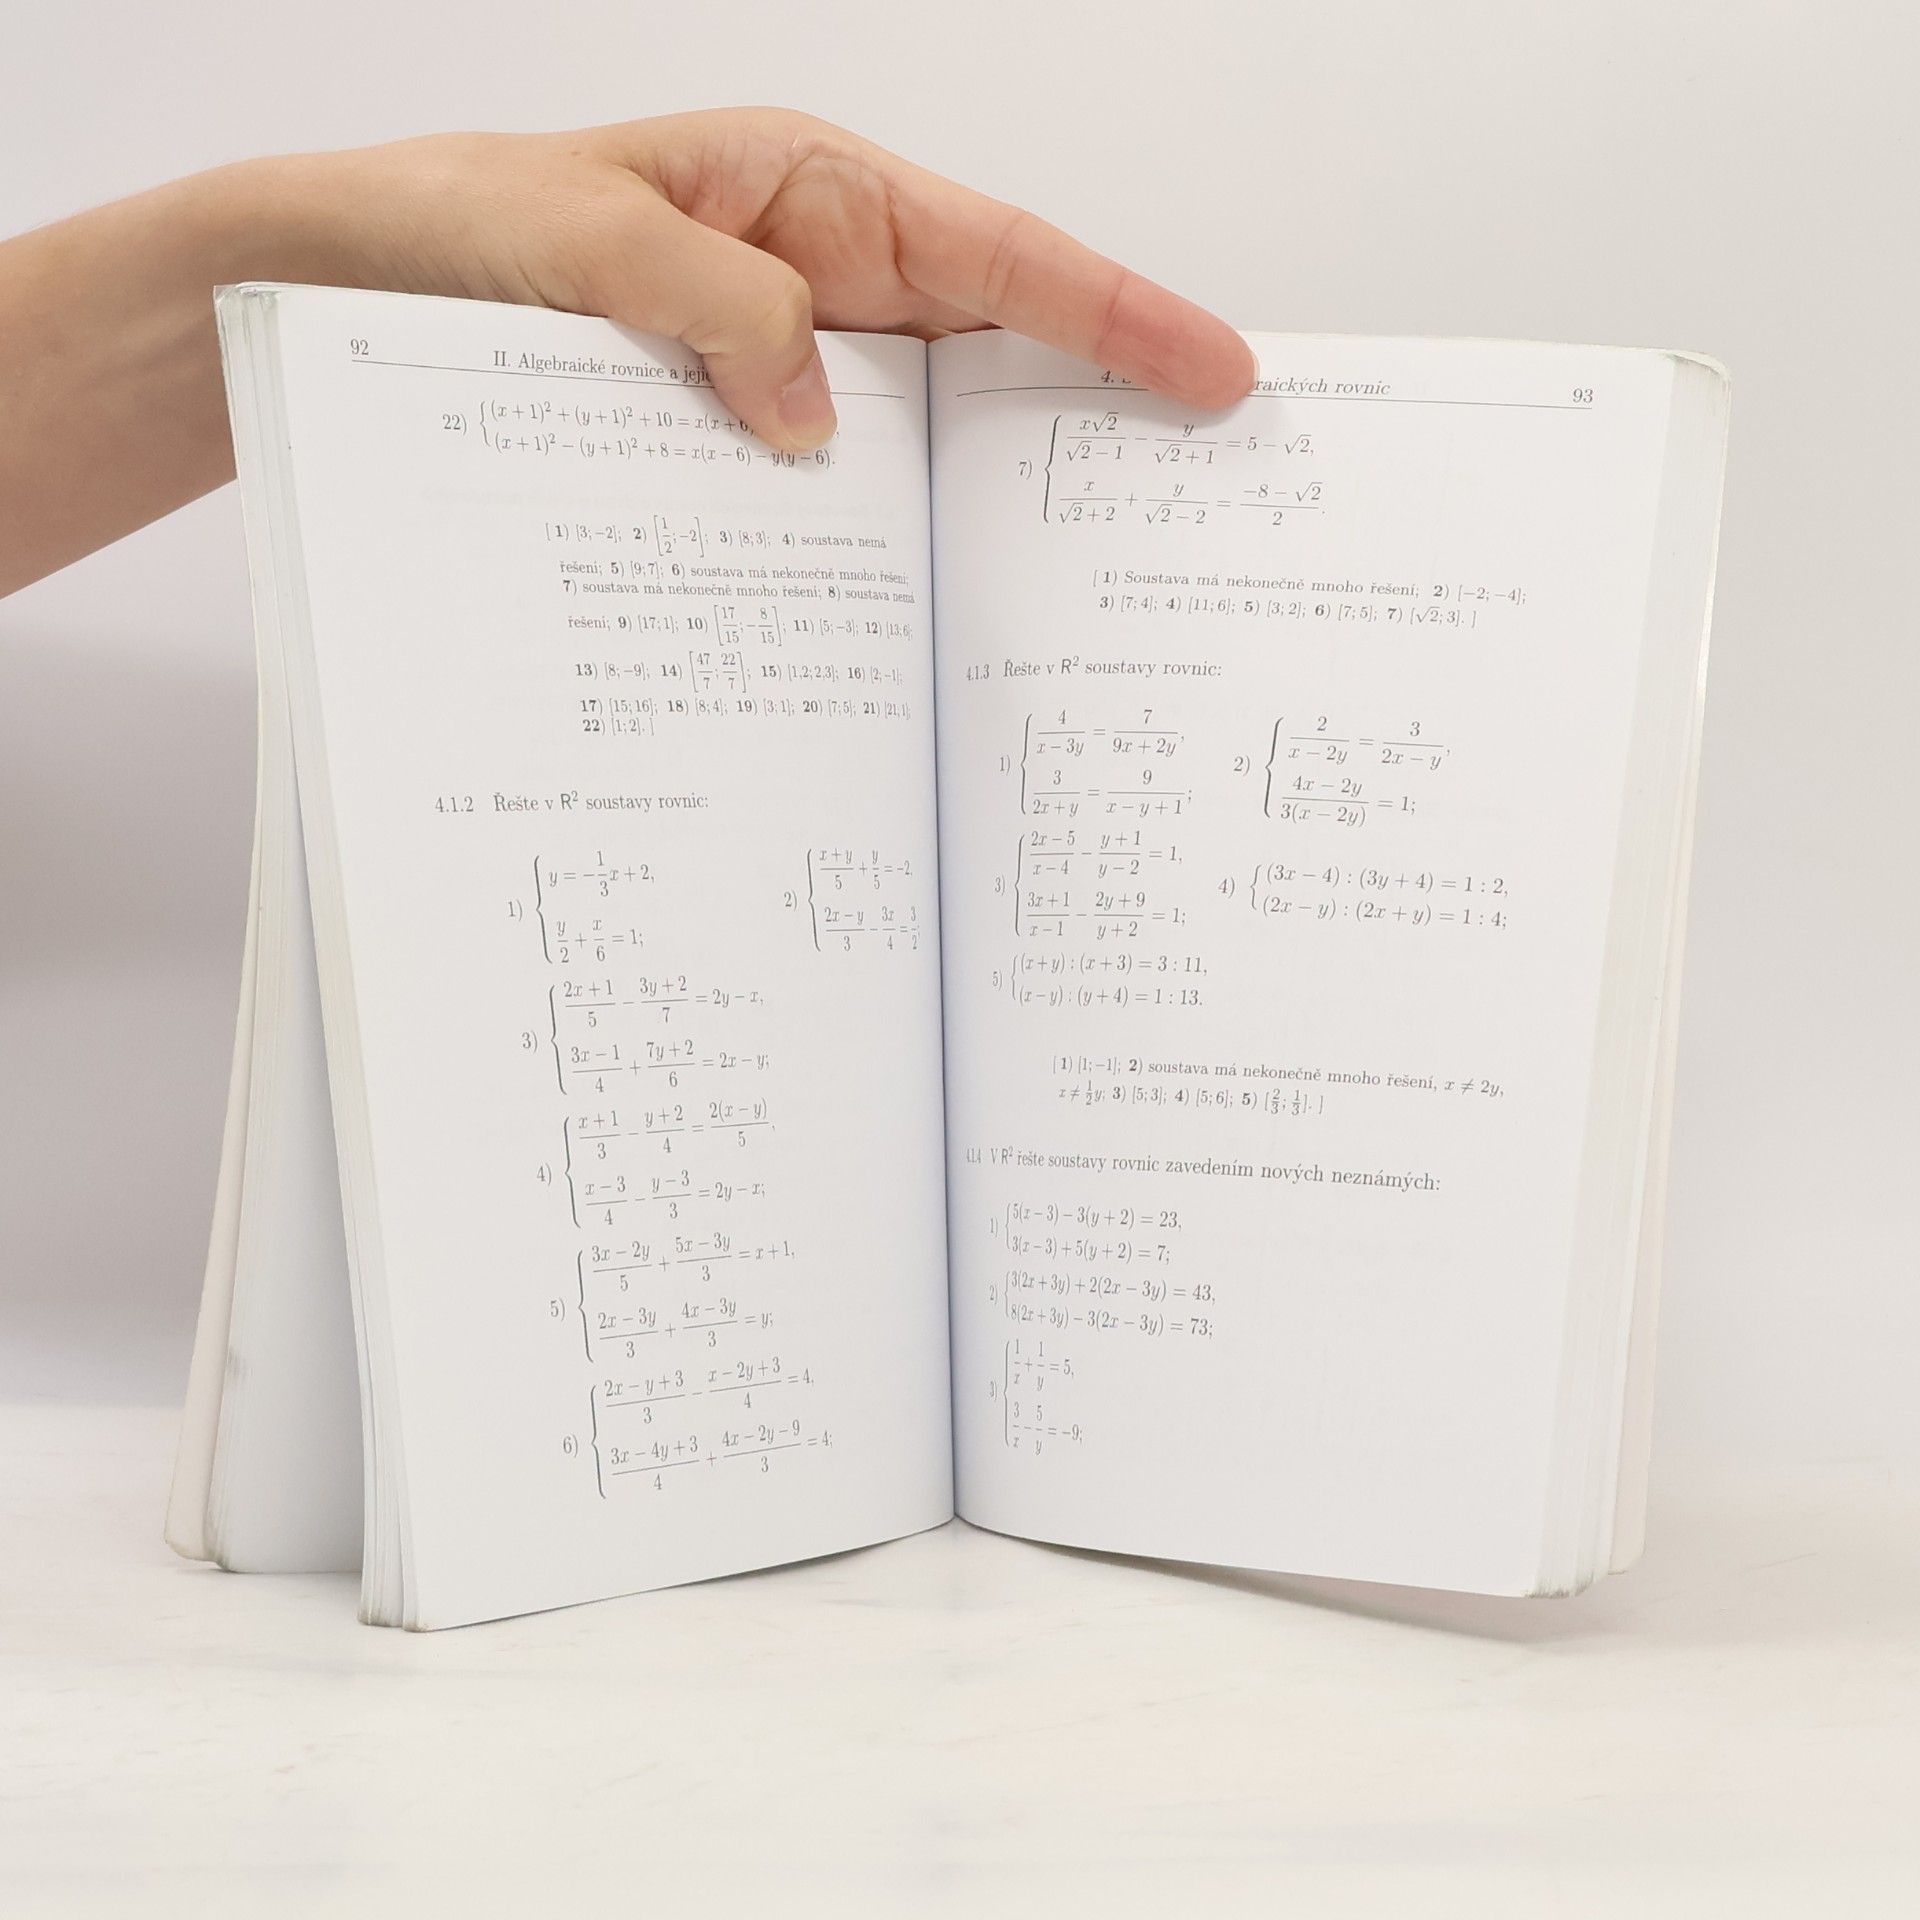 92
II. Algebraické rovnice a
22) {(x + 1)² + (y + 1)² + 10 = x(x +
(x + 1)² − (y + 1)² + 8 = x(x − 6) − y(y − 6).
[ 1) [3; −2]; 2) [1/2; −2]; 3) [8; 3]; 4) soustava nemá
řešení; 5) [9; 7]; 6) soustava má nekonečně mnoho řešení;
7) soustava má nekonečně mnoho řešení; 8) soustava nemá
řešení; 9) [17; 1]; 10) [17/15; −8/15]; 11) [5; −3]; 12) [13; 6];
13) [8; −9]; 14) [47/7; 22/7]; 15) [1,2; 2,3]; 16) [2; −1];
17) [15; 16]; 18) [8; 4]; 19) [3; 1]; 20) [7; 5]; 21) [21; 1];
22) [1; 2]. ]
4.1.2 Řešte v R² soustavy rovnic:
1) {y = −1/3x + 2,
y/2 + x/6 = 1;
2) {(x + y)/5 + y/5 = −2,
(2x − y)/3 − 3x/4 = 3/2;
3) {(2x + 1)/5 − (3y + 2)/7 = 2y − x,
(3x − 1)/4 + (7y + 2)/6 = 2x − y;
4) {(x + 1)/3 − (y + 2)/4 = 2(x − y)/5,
(x − 3)/4 − (y − 3)/3 = 2y − x;
5) {(3x − 2y)/5 + (5x − 3y)/3 = x + 1,
(2x − 3y)/3 + (4x − 3y)/3 = y;
6) {(2x − y + 3)/3 − (x − 2y + 3)/4 = 4,
(3x − 4y + 3)/4 + (4x − 2y − 9)/3 = 4;
4. raických rovnic
93
7) {x√2/(√2 − 1) − y/(√2 + 1) = 5 − √2,
x/(√2 + 2) + y/(√2 − 2) = (−8 − √2)/2.
[ 1) Soustava má nekonečně mnoho řešení; 2) [−2; −4];
3) [7; 4]; 4) [11; 6]; 5) [3; 2]; 6) [7; 5]; 7) [√2; 3]. ]
4.1.3 Řešte v R² soustavy rovnic:
1) {4/(x − 3y) = 7/(9x + 2y),
3/(2x + y) = 9/(x − y + 1);
2) {2/(x − 2y) = 3/(2x − y),
(4x − 2y)/(3(x − 2y)) = 1;
3) {(2x − 5)/(x − 4) − (y + 1)/(y − 2) = 1,
(3x + 1)/(x − 1) − (2y + 9)/(y + 2) = 1;
4) {(3x − 4) : (3y + 4) = 1 : 2,
(2x − y) : (2x + y) = 1 : 4;
5) {(x + y) : (x + 3) = 3 : 11,
(x − y) : (y + 4) = 1 : 13.
[ 1) [1; −1]; 2) soustava má nekonečně mnoho řešení, x ≠ 2y,
x ≠ 1/2y; 3) [5; 3]; 4) [5; 6]; 5) [2/3; 1/3]. ]
4.1.4 V R² řešte soustavy rovnic zavedením nových neznámých:
1) {5(x − 3) − 3(y + 2) = 23,
3(x − 3) + 5(y + 2) = 7;
2) {3(2x + 3y) + 2(2x − 3y) = 43,
8(2x + 3y) − 3(2x − 3y) = 73;
3) {1/x + 1/y = 5,
3/x − 5/y = −9;